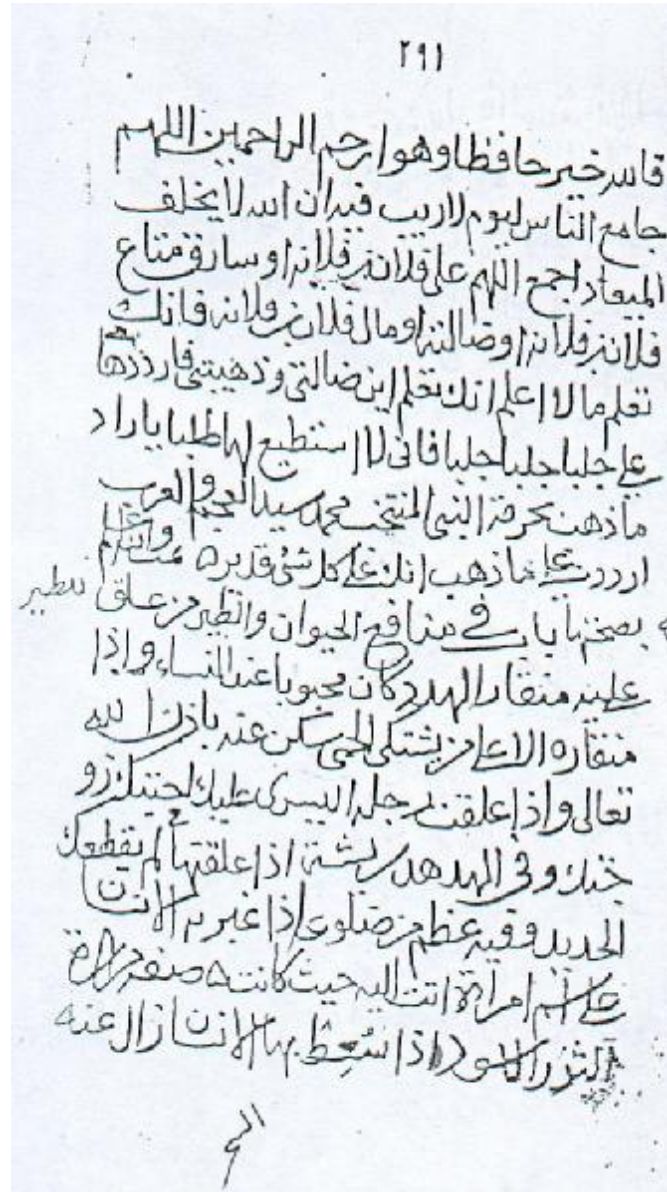 ٢٩١
فالله خير حافظا وهو ارحم الراحمين اللهم
جامع الناس ليوم لاريب فيه ان الله لا يخلف
الميعاد اجمع اللهم على فلان بن فلانه او سارق متاع
فلان بن فلانه او ضالته او مال فلان بن فلانه فانك
تعلم مالا اعلم انك تعلم اين ضالتى وذهيبتى فارددها
على جلبا جلبا جلبا فانى لا استطيع لها طلبا ياراد
ماذهب بحرمة النبى المنتخب محمد سيد العجم والعرب
اردد على ماذهب انك على كل شئ قدير
باب فى منافع الحيوان والطير من علق
للطير
عليه منقار الهدهد كان محبوبا عند النساء واذا
منقاره الاعلى من يشتكى الحمى سكن عنه باذن الله
تعالى واذا علقت رجله اليسرى عليك
وفى الهدهد ريشة اذا علقتها لم يقطعك
الحديد وفيه عظم من ضلوعه اذا به الانسان
على اسم امراة اتت اليه حيث كانت صفة مرارة
الثور الاسود اذا سعط بها الانسان زال عنه